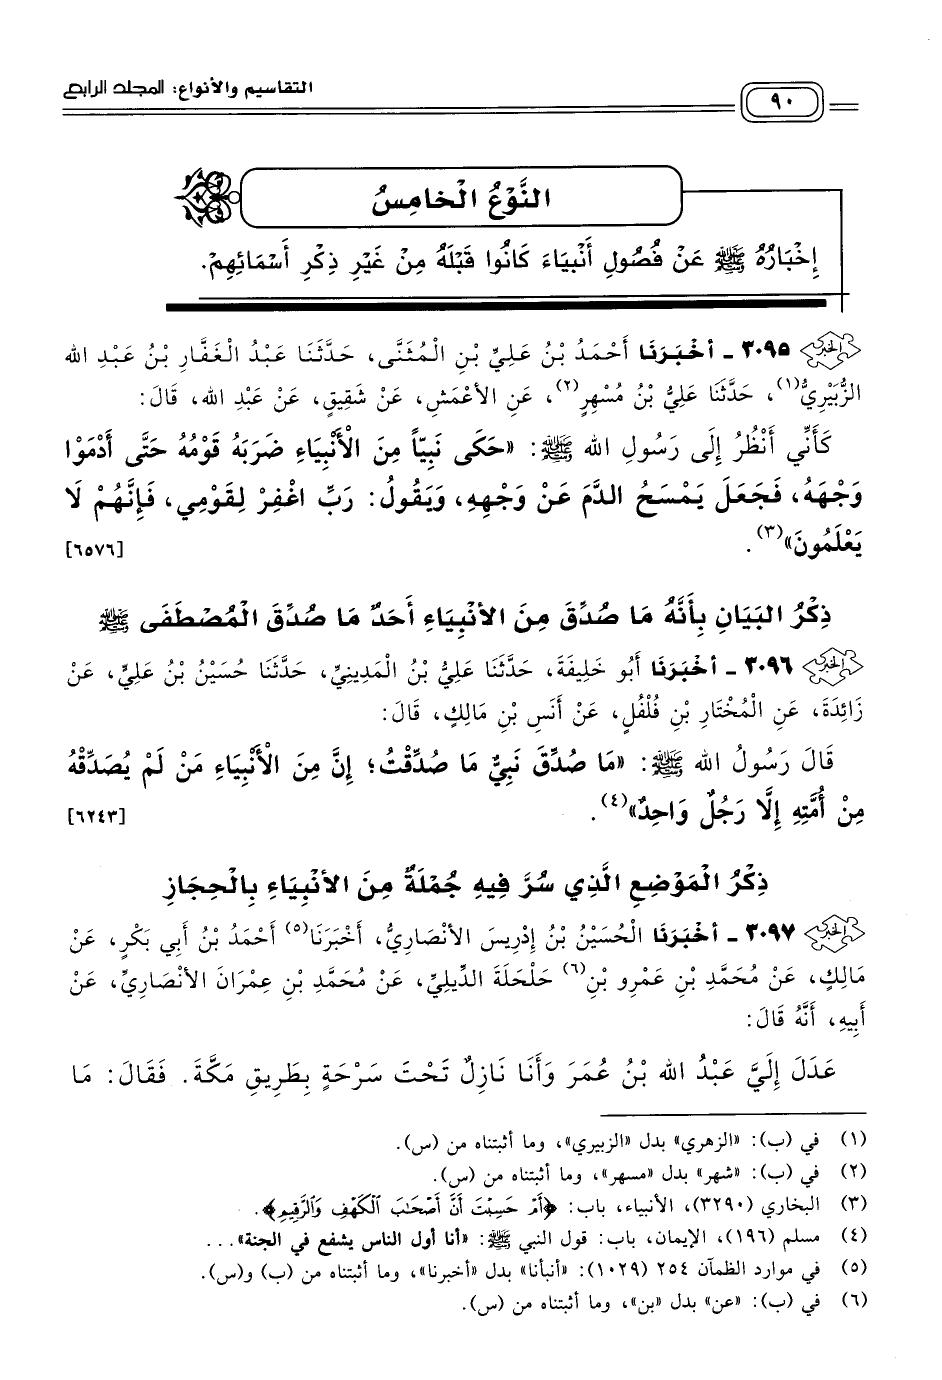 التقاسيم والأنواع: المجلد الرابع
٩٠
النَّوْعُ الْخَامِسُ
إِخْبَارُهُ ﷺ عَنْ فُصُولِ أَنْبِيَاءَ كَانُوا قَبْلَهُ مِنْ غَيْرِ ذِكْرِ أَسْمَائِهِمْ.
الخبر ٣٠٩٥ - أَخْبَرَنَا أَحْمَدُ بْنُ عَلِيِّ بْنِ الْمُثَنَّى، حَدَّثَنَا عَبْدُ الْغَفَّارِ بْنُ عَبْدِ الله
الزُّبَيْرِيُّ(١)، حَدَّثَنَا عَلِيُّ بْنُ مُسْهِرٍ(٢)، عَنِ الأَعْمَشِ، عَنْ شَقِيقٍ، عَنْ عَبْدِ الله، قَالَ:
كَأَنِّي أَنْظُرُ إِلَى رَسُولِ الله ﷺ: «حَكَى نَبِيّاً مِنَ الْأَنْبِيَاءِ ضَرَبَهُ قَوْمُهُ حَتَّى أَدْمَوْا
وَجْهَهُ، فَجَعَلَ يَمْسَحُ الدَّمَ عَنْ وَجْهِهِ، وَيَقُولُ: رَبِّ اغْفِرْ لِقَوْمِي، فَإِنَّهُمْ لَا
يَعْلَمُونَ»(٣). [٦٥٧٦]
ذِكْرُ البَيَانِ بِأَنَّهُ مَا صُدِّقَ مِنَ الأَنْبِيَاءِ أَحَدٌ مَا صُدِّقَ الْمُصْطَفَى ﷺ
الخبر ٣٠٩٦ - أَخْبَرَنَا أَبُو خَلِيفَةَ، حَدَّثَنَا عَلِيُّ بْنُ الْمَدِينِيِّ، حَدَّثَنَا حُسَيْنُ بْنُ عَلِيٍّ، عَنْ
زَائِدَةَ، عَنِ الْمُخْتَارِ بْنِ فُلْفُلٍ، عَنْ أَنَسِ بْنِ مَالِكٍ، قَالَ:
قَالَ رَسُولُ الله ﷺ: «مَا صُدِّقَ نَبِيٌّ مَا صُدِّقْتُ؛ إِنَّ مِنَ الْأَنْبِيَاءِ مَنْ لَمْ يُصَدِّقْهُ
مِنْ أُمَّتِهِ إِلَّا رَجُلٌ وَاحِدٌ»(٤). [٦٢٤٣]
ذِكْرُ الْمَوْضِعِ الَّذِي سُرَّ فِيهِ جُمْلَةٌ مِنَ الأَنْبِيَاءِ بِالْحِجَازِ
الخبر ٣٠٩٧ - أَخْبَرَنَا الْحُسَيْنُ بْنُ إِدْرِيسَ الأَنْصَارِيُّ، أَخْبَرَنَا(٥) أَحْمَدُ بْنُ أَبِي بَكْرٍ، عَنْ
مَالِكٍ، عَنْ مُحَمَّدِ بْنِ عَمْرِو بْنِ(٦) حَلْحَلَةَ الدِّيلِيِّ، عَنْ مُحَمَّدِ بْنِ عِمْرَانَ الأَنْصَارِيِّ، عَنْ
أَبِيهِ، أَنَّهُ قَالَ:
عَدَلَ إِلَيَّ عَبْدُ الله بْنُ عُمَرَ وَأَنَا نَازِلٌ تَحْتَ سَرْحَةٍ بِطَرِيقِ مَكَّةَ. فَقَالَ: مَا
(١) في (ب): «الزهري» بدل «الزبيري»، وما أثبتناه من (س).
(٢) في (ب): «شهر» بدل «مسهر»، وما أثبتناه من (س).
(٣) البخاري (٣٢٩٠)، الأنبياء، باب: ﴿أَمْ حَسِبْتَ أَنَّ أَصْحَابَ الْكَهْفِ وَالرَّقِيمِ﴾.
(٤) مسلم (١٩٦)، الإيمان، باب: قول النبي ﷺ: «أنا أول الناس يشفع في الجنة»...
(٥) في موارد الظمآن ٢٥٤ (١٠٢٩): «أنبأنا» بدل «أخبرنا»، وما أثبتناه من (ب) و(س).
(٦) في (ب): «عن» بدل «بن»، وما أثبتناه من (س).